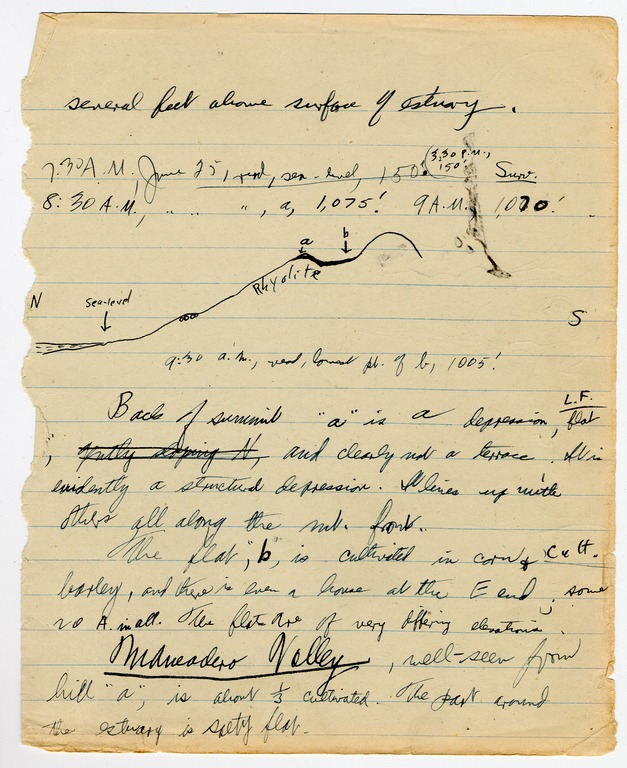 several feet above surface of estuary.
(3:30 P.M.,
150'
7:30 A.M., June 25, read, sea-level, 150'. Surv.
8:30 A.M., " " ", a, 1,075! 9 A.M. 1,070!
a b
Rhyolite
N sea-level
S
9:30 a.m., read, lowest pt. of b, 1005!
L.F.
Back of summit "a" is a depression, flat
, gently sloping N, and clearly not a terrace. It is
evidently a structural depression. It lines up with
others all along the mt. front.
The flat, "b", is cultivated in corn & Cult.
barley, and there is even a house at the E end; some
20 A. in all. The flats are of very differing elevations.
Maneadero Valley, well-seen from
hill "a", is about 1/3 cultivated. The part around
the estuary is salty flat.